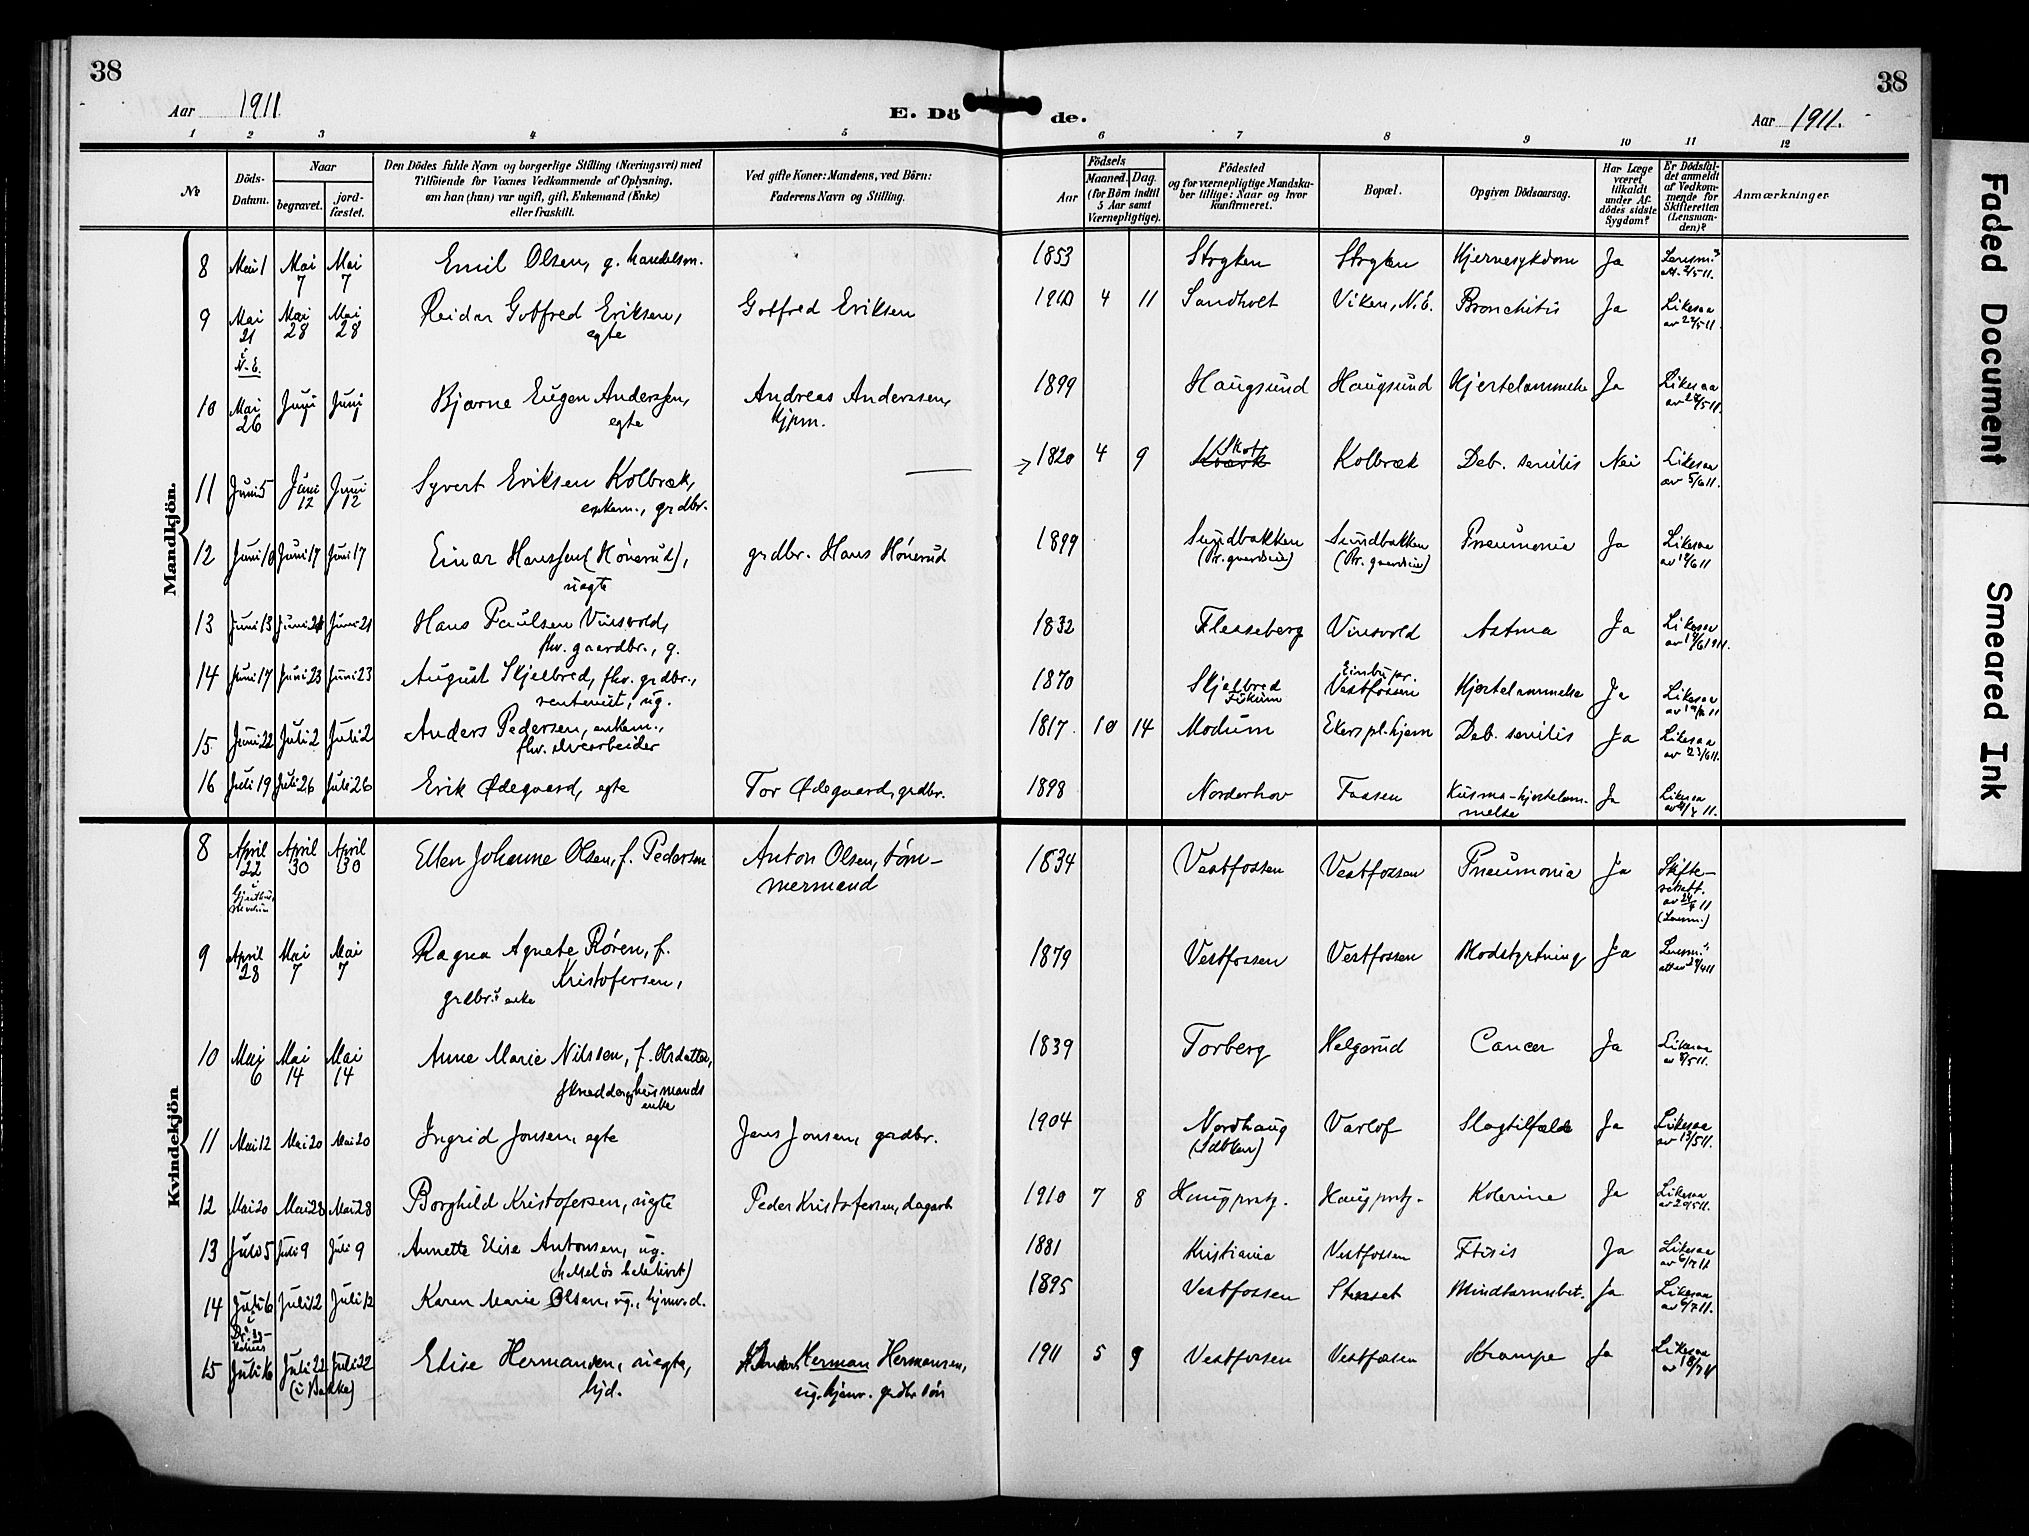 38
38
Aar 1911.
E. Dö de.
Aar 1911.
1 2 3 4 5 6 7 8 9 10 11 12
No
Döds-Datum.
Naar
begravet.
jord-fæstet.
Den Dödes fulde Navn og borgerlige Stilling (Næringsvei) med
Tilföiende for Voxnes Vedkommende af Oplysning,
om han (hun) var ugift, gift, Enkemand (Enke)
eller fraskilt.
Ved gifte Koner: Mandens, ved Börn:
Faderens Navn og Stilling.
Födsels
Aar
Maaned. Dag.
(for Börn indtil
5 Aar samt
Værnepligtige).
Födested
og for værnepligtige Mandska-
ber tillige: Naar og hvor
konfirmeret.
Bopæl.
Opgiven Dödsaarsag.
Har Læge
været
tilkaldt
under Af-
dödes sidste
Sygdom?
Er Dödsfal-
det anmeldt
af Vedkom-
mende for
Skifteretten
(Lensman-
den)?
Anmærkninger
Mandkjön.
8 Mai 1 Mai 7 Mai 7 Emil Olsen, g. handelsm. 1853 Stryken Stryken Hjernesykdom Ja Lensm. att. 2/5 11.
9 Mai 21 i N. E. Mai 28 Mai 28 Reidar Gotfred Eriksen, egte Gotfred Eriksen 1910 4 11 Sandholt Viken, N. E. Bronchitis Ja Likesaa av 22/5 11.
10 Mai 26 Juni Juni Bjarne Eugen Anderssen, egte Andreas Anderssen, kjpm. 1899 Haugsund Haugsund Hjertelammelse Ja Likesaa av 5 11.
11 Juni 5 Juni 12 Juni 12 Syvert Eriksen Kolbræk, enkem., grdbr. 1820 4 9 Skot Kolbræk Deb. senilis Nei Likesaa av 5/6 11.
12 Juni 10 Juni 17 Juni 17 Einar Hanssen (Hönerud), uegte grdbr. Hans Hönerud 1899 Sundbakken (Pr. gaardeie) Sundbakken (Pr. gaardeie) Pneumonia Ja Likesaa av /6 11
13 Juni 13 Juni 21 Juni 21 Hans Paulsen Vinsvold, fhv. gaardbr., g. 1832 Flesseberg Vinsvold Astma Ja Likesaa av /6 1911.
14 Juni 17 Juni 23 Juni 23 August Skjelbred, fhv. grdbr., rentenist, ug. 1870 Skjelbred Fiskum Vestfossen Hjertelammelse Ja Likesaa av 11
15 Juni 22 Juli 2 Juli 2 Anders Pedersen, enkem., fhv. elvearbeider 1817. 10 14 Modum Ekers pl.hjem Deb. senilis Ja Likesaa av 23/6 11.
16 Juli 19 Juli 26 Juli 26 Erik Ødegaard, egte Tor Ødegaard, grdbr. 1898 Norderhov Faasen Kusma-hjertelam-melse Ja Likesaa av /7 11.
Kvindekjön
8 April 22 April 30 April 30 Ellen Johanne Olsen, f. Pedersen Anton Olsen, töm-mermand 1834 Vestfossen Vestfossen Pneumonia Ja Skifte-rettatt. av 24/4 11 (Lensm.)
9 April 28 Mai 7 Mai 7 Ragna Agnete Rören, f. Kristofersen, grdbr.s enke 1879 Vestfossen Vestfossen Modstyrtning Ja Lensm.s att av /4 11
10 Mai 6 Mai 14 Mai 14 Anne Marie Nilssen, f. Olsdatter, skrædder og husmands enke 1839 Torberg Helgerud Cancer Ja Likesaa av 8/5 11.
11 Mai 12 Mai 20 Mai 20 Ingrid Jonsen, egte Jens Jonsen, grdbr. 1904 Nordhaug (Sdbken) Varlof Slagtilfælde Ja Likesaa av 13/5 11.
12 Mai 20 Mai 28 Mai 28 Borghild Kristofersen, uegte Peder Kristofersen, dagarb. 1910 7 8 Haug prstg. Haug prstg. Kolerine Ja Likesaa av 20/5 11.
13 Juli 5 Juli 9 Juli 9 Annette Elise Antonsen, ug. 1881 Kristiania Vestfossen Ftisis Ja Likesaa av 6/7 11
14 Juli 6 Juli 12 Juli 12 Karen Marie Olsen, ug., hjmv.d. 1895 Vestfossen Stenset Blindtarmsbet. Ja Likesaa av 6/7 11.
15 Juli 16 Juli 22 (i Bakke) Juli 22 Elise Hermansen, uegte, hjd. Herman Hermansen, ug. hjmv. grdbr.sön 1911 5 9 Vestfossen Vestfossen Krampe Ja Likesaa av 18/7 11
Faded Document
Smeared Ink